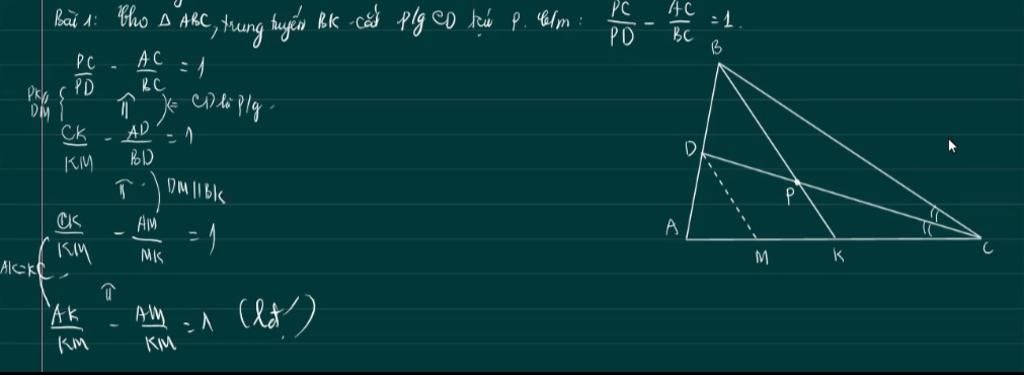 Bài 1: Cho Δ ABC, trung tuyến BK cắt p/g CD tại P. C/m: PC/PD - AC/BC = 1.
PC/PD - AC/BC = 1
PK // DM ⇑ ⇐ CD là p/g.
CK/KM - AD/BD = 1
⇑ DM // BK
CK/KM - AM/MK = 1
AK=KC ⇑
AK/KM - AM/KM = 1 (lđ)
B
D
P
A
M
K
C